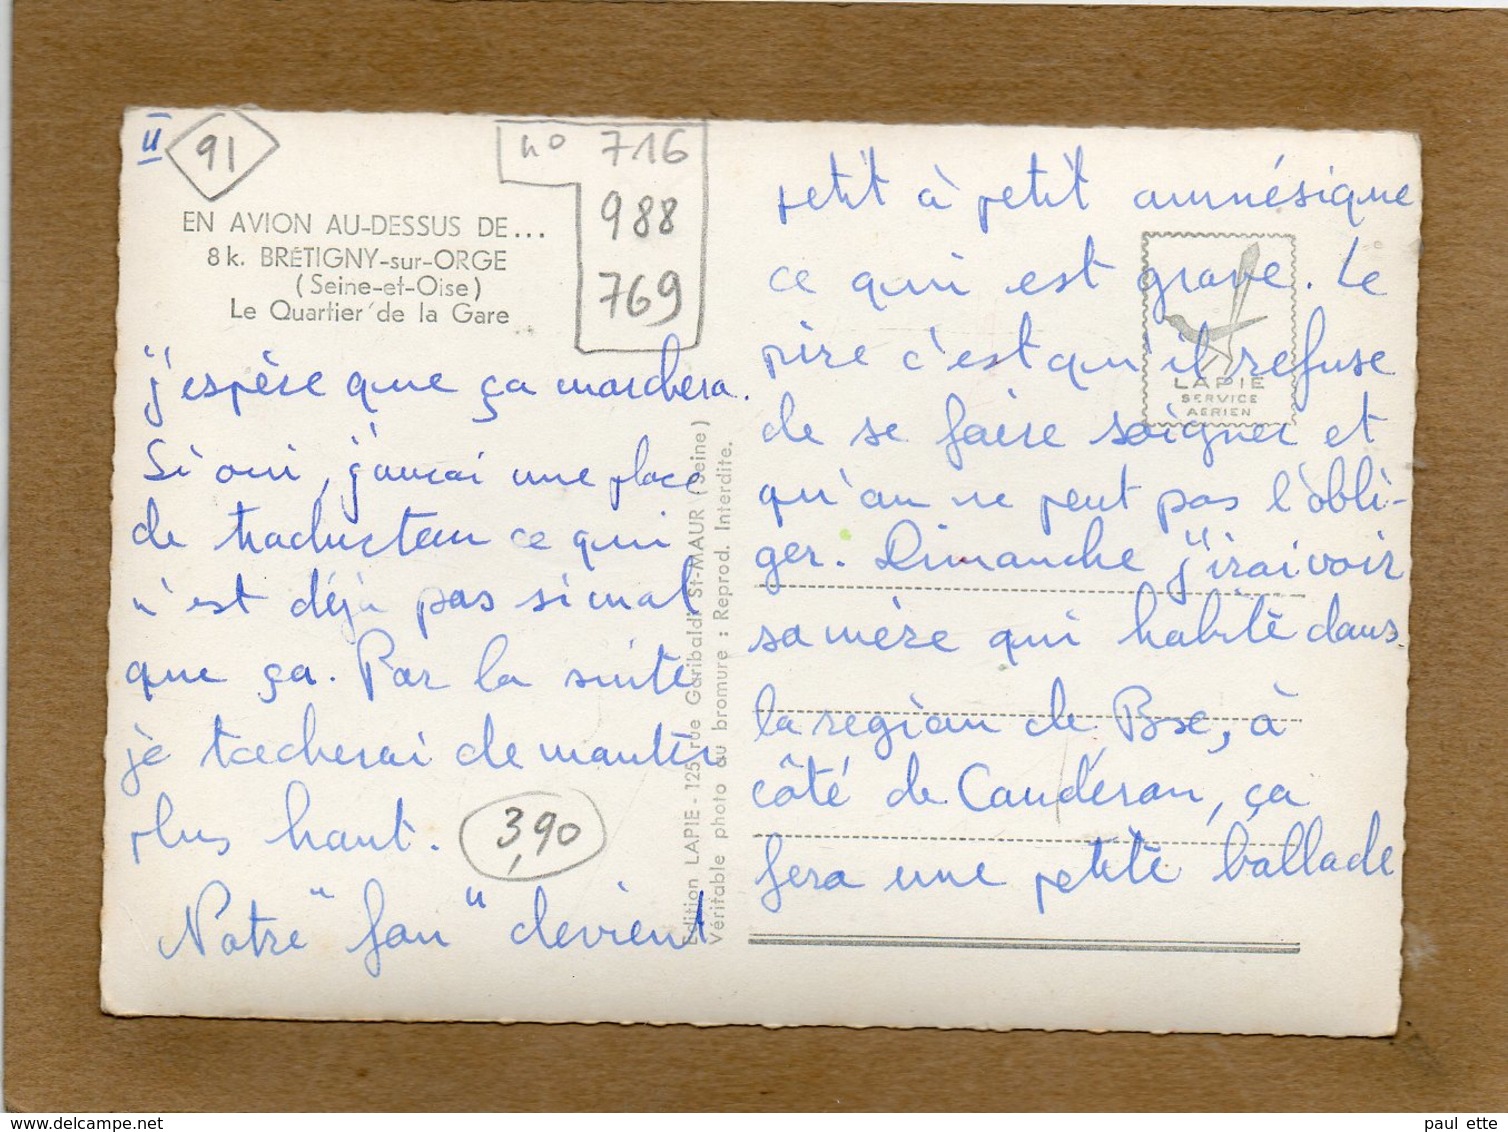 II
91
n° 716
988
769
EN AVION AU-DESSUS DE...
8 k. BRÉTIGNY-sur-ORGE
(Seine-et-Oise)
Le Quartier de la Gare
j'espère que ça marchera.
Si oui, j'aurai une place
de traducteur ce qui
n'est déjà pas si mal
que ça. Par la suite
je tacherai de monter
plus haut.
3,90
Notre "fou" devient
Edition LAPIE - 125, rue Garibaldi St-MAUR (Seine)
Véritable photo au bromure : Reprod. Interdite.
petit à petit amnésique
ce qui est grave. Le
pire c'est qu'il refuse
de se faire soigner et
qu'on ne peut pas l'obli-
ger. Dimanche j'irai voir
sa mère qui habite dans
la région de Bse, à
côté de Caudéran, ça
fera une petite ballade
LAPIE
SERVICE
AERIEN
paul ette